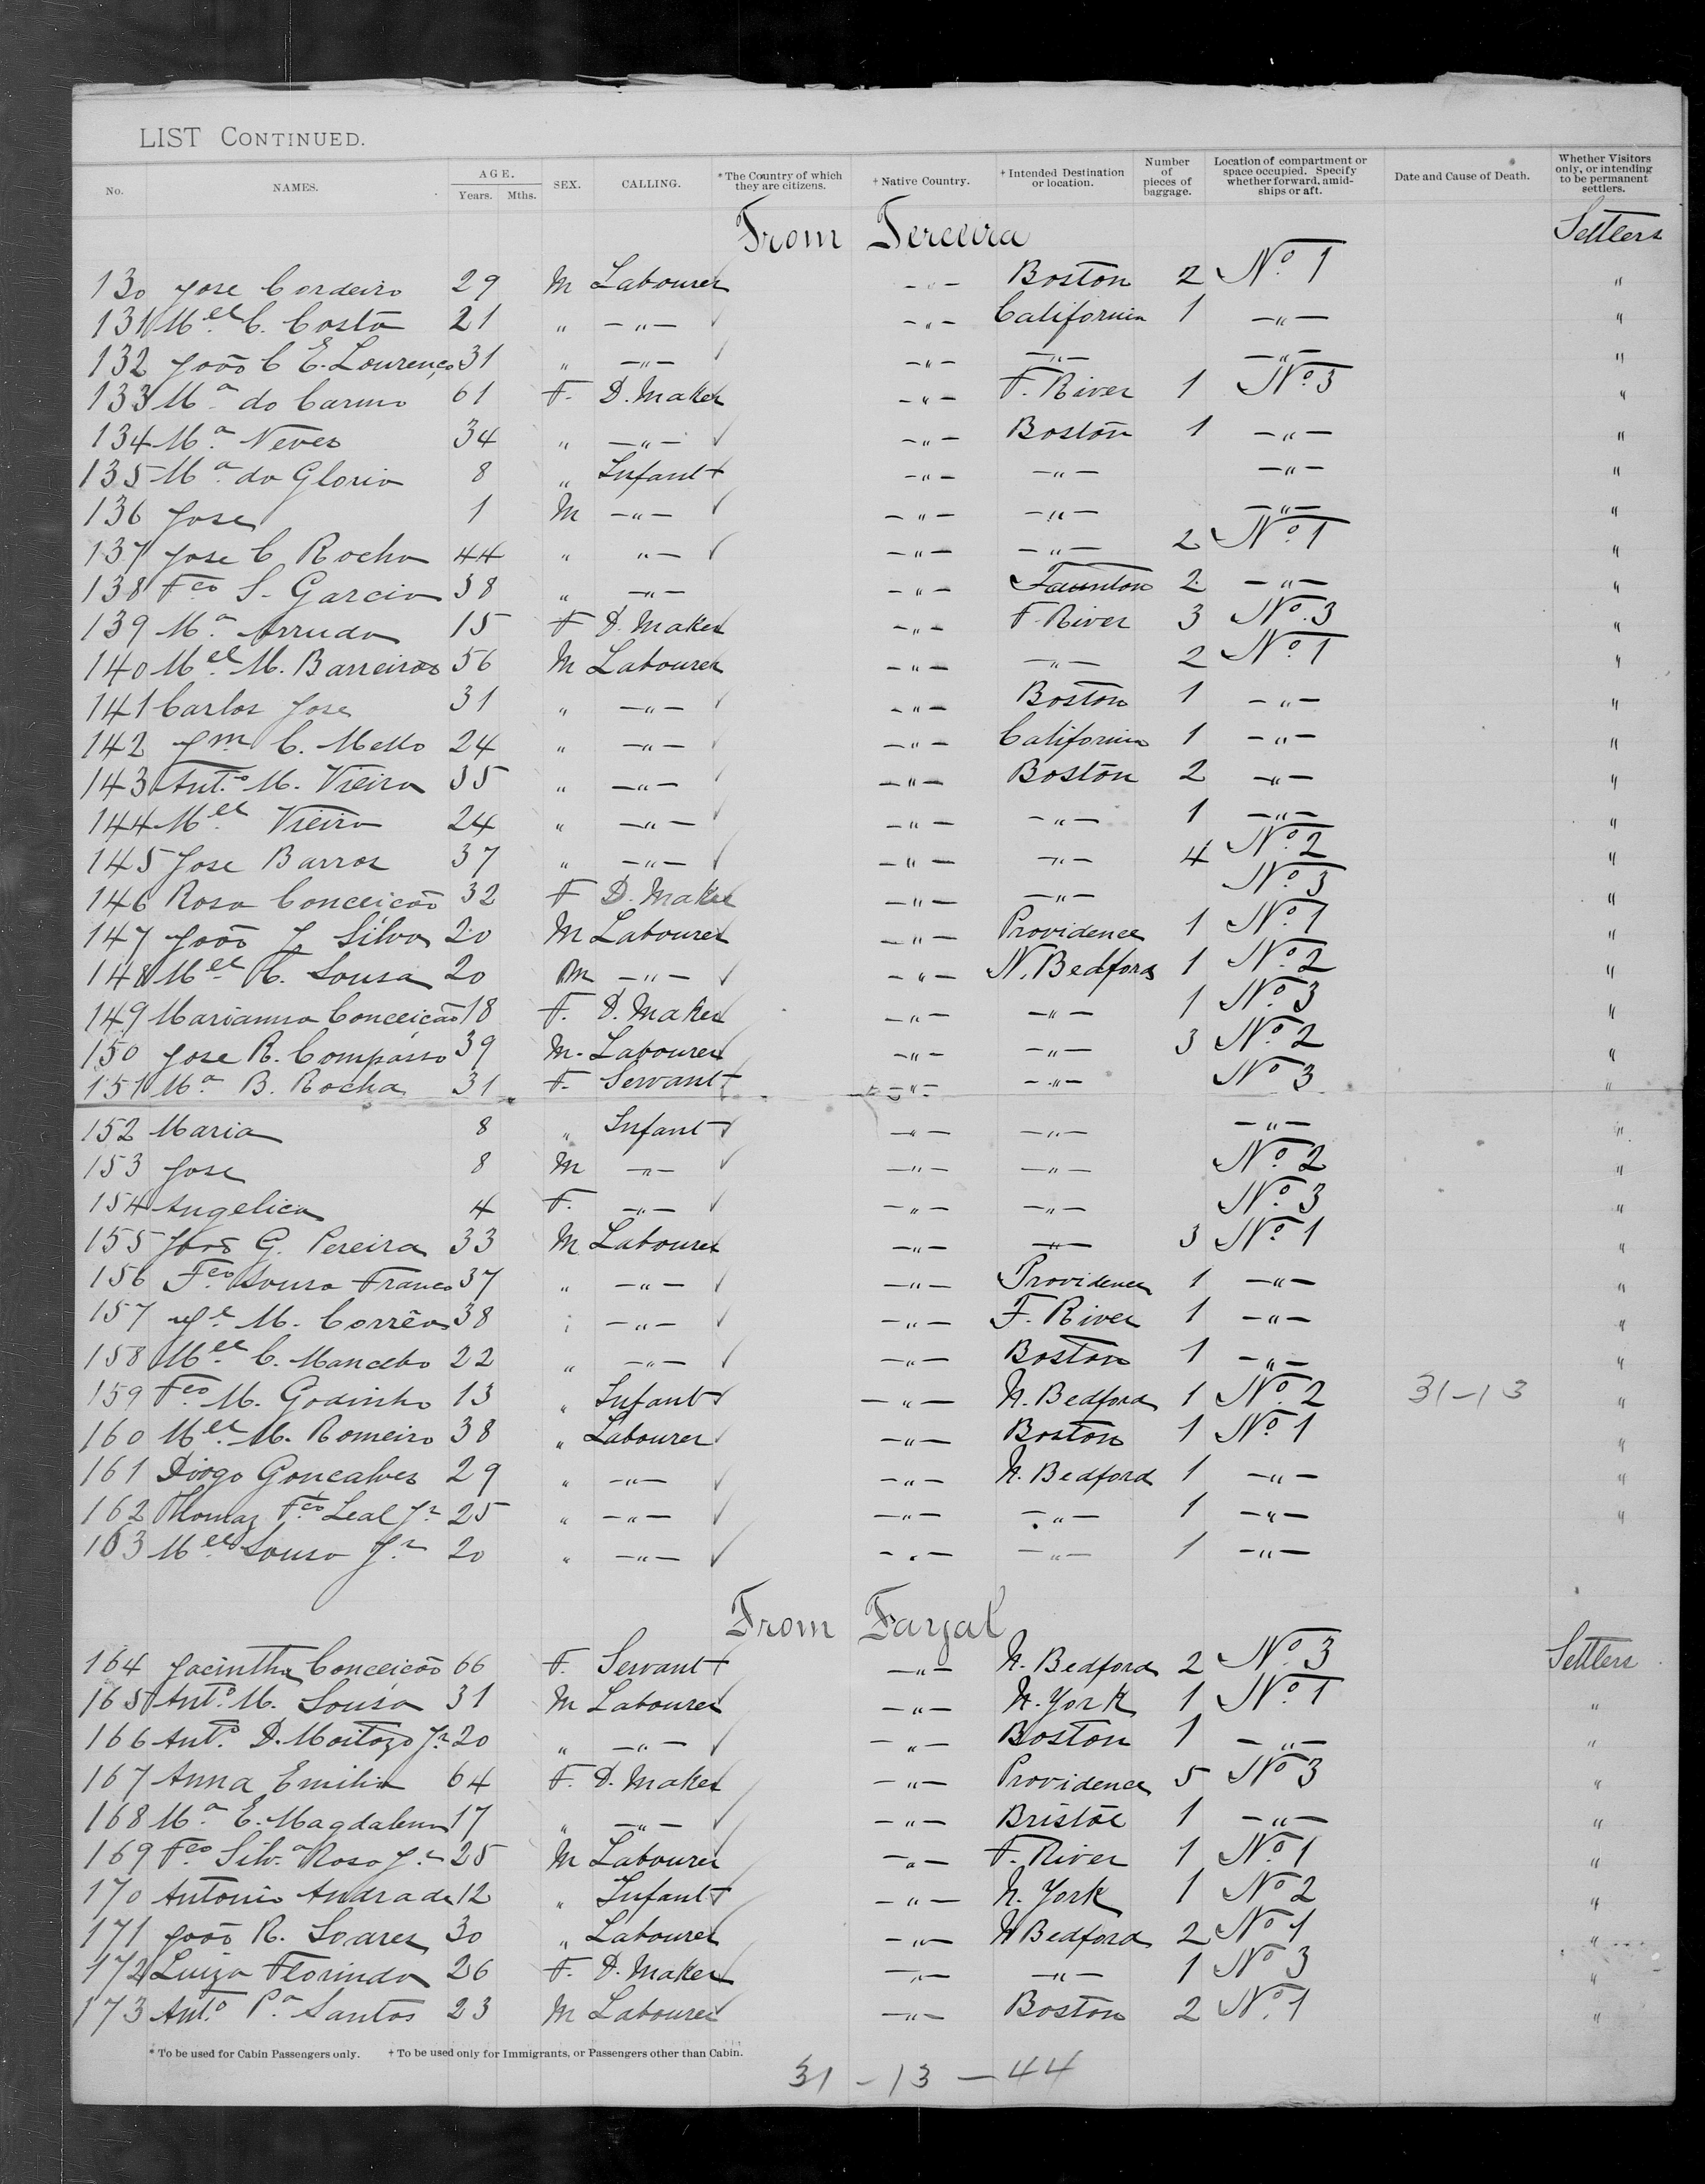 LIST CONTINUED.
No. NAMES. AGE. Years. Mths. SEX. CALLING. *The Country of which they are citizens. †Native Country. †Intended Destination or location. Number of pieces of baggage. Location of compartment or space occupied. Specify whether forward, amidships or aft. Date and Cause of Death. Whether Visitors only, or intending to be permanent settlers.
From Terceira Settlers
130 Jose Cordeiro 29 M Labourer -"- Boston 2 Nº 1 "
131 Mel C. Costa 21 " -"- ✓ -"- California 1 -"- "
132 João C E. Lourenço 31 " -"- ✓ -"- -"- -"- "
133 Mª do Carmo 61 F. D. Maker -"- F. River 1 Nº 3 "
134 Mª Neves 34 " -"- ✓ -"- Boston 1 -"- "
135 Mª da Gloria 8 " Infant -"- -"- -"- "
136 Jose 1 M -"- ✓ -"- -"- -"- "
137 Jose C Rocha 44 " "- ✓ -"- -"- 2 Nº 1 "
138 Fco S. Garcia 38 " -"- -"- Taunton 2 -"- "
139 Mª Arruda 15 F D. Maker -"- F. River 3 Nº 3 "
140 Mel M. Barreiros 56 M Labourer -"- -"- 2 Nº 1 "
141 Carlos Jose 31 " -"- ✓ -"- Boston 1 -"- "
142 Jm C. Mello 24 " -"- ✓ -"- California 1 -"- "
143 Antº M. Vieira 35 " -"- ✓ -"- Boston 2 -"- "
144 Mel Vieira 24 " -"- ✓ -"- -"- 1 -"- "
145 Jose Barros 37 " -"- ✓ -"- -"- 4 Nº 2 "
146 Rosa Conceicão 32 F D. Maker -"- -"- Nº 3 "
147 João J. Silva 20 M Labourer -"- Providence 1 Nº 1 "
148 Mel Sousa 20 M -"- ✓ -"- N. Bedford 1 Nº 2 "
149 Marianna Conceicão 18 F. D. Maker -"- -"- 1 Nº 3 "
150 Jose R. Compasso 39 M. Labourer -"- -"- 3 Nº 2 "
151 Mª B. Rocha 31 F. Servant -"- -"- Nº 3 "
152 Maria 8 " Infant -"- -"- -"- "
153 Jose 8 M -"- ✓ -"- -"- Nº 2 "
154 Angelica 4 F. -"- ✓ -"- -"- Nº 3 "
155 João G. Pereira 33 M Labourer -"- -"- 3 Nº 1 "
156 Fco Sousa Franco 37 " -"- ✓ -"- Providence 1 -"- "
157 Je M. Corrêa 38 " -"- ✓ -"- F. River 1 -"- "
158 Mel C. Mancebo 22 " -"- ✓ -"- Boston 1 -"- "
159 Fco M. Godinho 13 " Infant -"- N. Bedford 1 Nº 2 31-13 "
160 Mel M. Romeiro 38 " Labourer ✓ -"- Boston 1 Nº 1 "
161 Diogo Goncalves 29 " -"- ✓ -"- N. Bedford 1 -"- "
162 Thomaz Fco Leal Jr 25 " -"- ✓ -"- -"- 1 -"- "
163 Mel Sousa Jr 20 " -"- ✓ -"- -"- 1 -"-
From Fayal
164 Jacintha Conceicão 66 F. Servant -"- N. Bedford 2 Nº 3 Settlers
165 Antº M. Sousa 31 M Labourer -"- N. York 1 Nº 1 "
166 Antº D. Moitozo Jr 20 " -"- ✓ -"- Boston 1 -"- "
167 Anna Emilia 64 F. D. Maker -"- Providence 5 Nº 3 "
168 Mª E. Magdalena 17 " -"- ✓ -"- Bristol 1 -"- "
169 Fco Silvª Rosa Jr 25 M Labourer -"- F. River 1 Nº 1 "
170 Antonio Andrade 12 " Infant -"- N. York 1 Nº 2 "
171 João R. Soares 30 " Labourer -"- N Bedford 2 Nº 1 "
172 Luiza Florinda 26 F. D. Maker -"- -"- 1 Nº 3 "
173 Antº Pª Santos 23 M Labourer -"- Boston 2 Nº 1 "
*To be used for Cabin Passengers only. †To be used only for Immigrants, or Passengers other than Cabin.
31 - 13 - 44